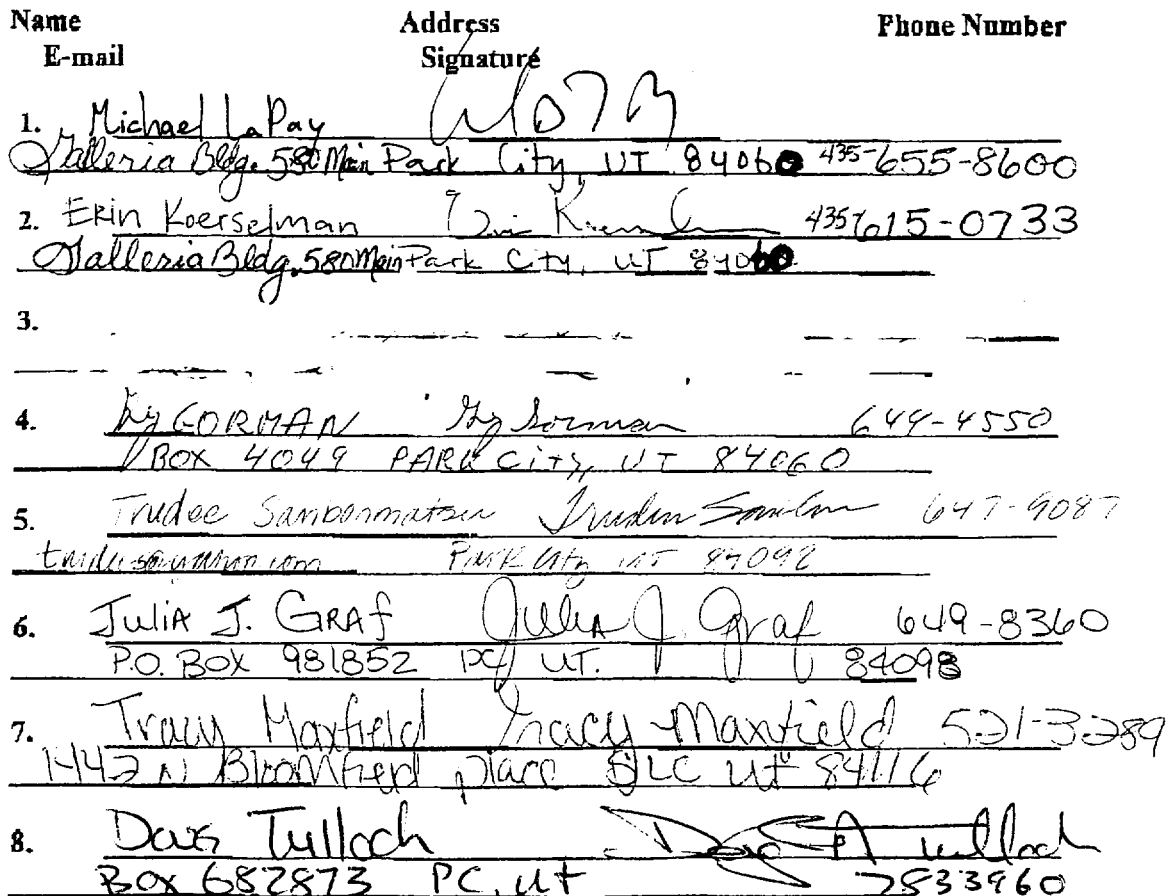 Name Address Phone Number
E-mail Signature
1. Michael LaPay
Galleria Bldg. 580 Main Park City, UT 84060 435-655-8600
2. Erin Koerselman Erin 435-615-0733
Galleria Bldg. 580 Main Park City, UT 84060
3.
4. GORMAN Gorman 649-4550
BOX 4049 PARK City, UT 84060
5. Trudee 647-9087
Park City UT
6. Julia J. Graf Julia J Graf 649-8360
P.O. BOX 981852 PC, UT. 84098
7. Tracy Maxfield Tracy Maxfield 521-3289
1442 N Bloomfield place SLC Ut 84116
8. Doug Tulloch Doug A Tulloch
Box 682873 PC, Ut 7833960